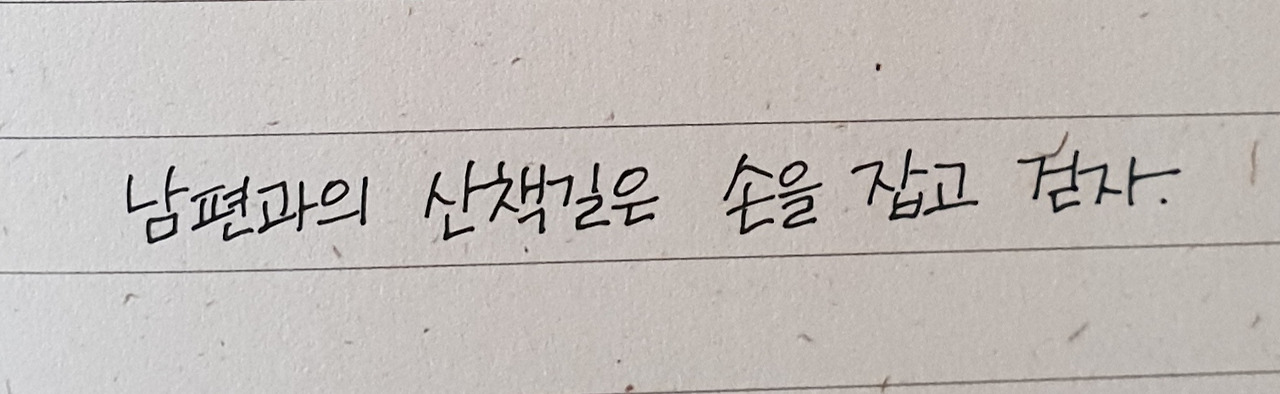 남편과의 산책길은 손을 잡고 걷자.